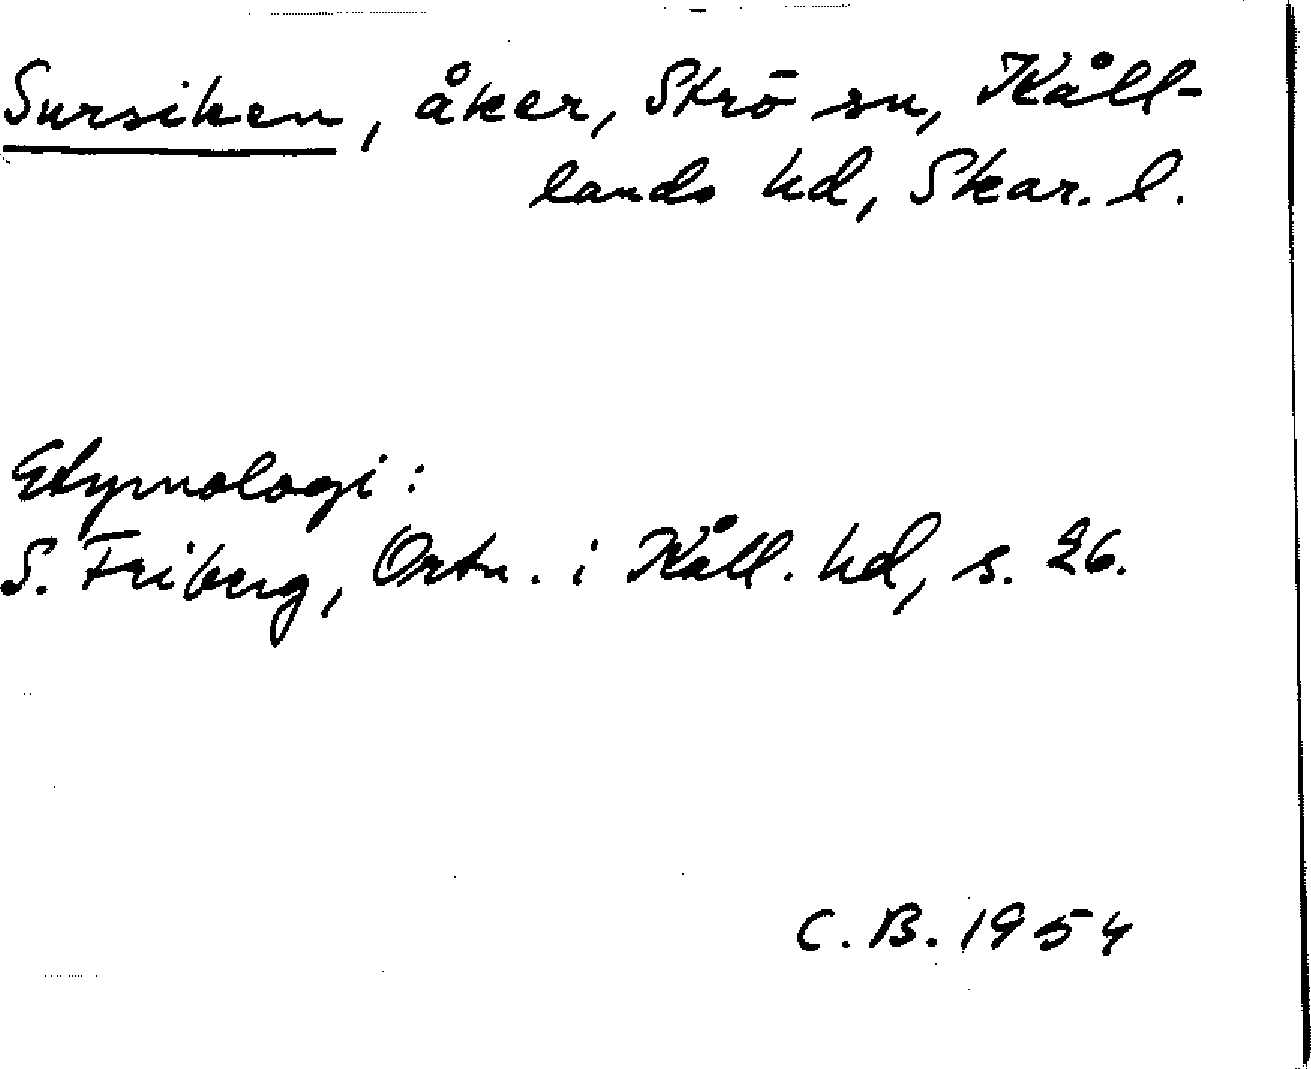 Sursiken, åker, Strö sn, Kåll-
lands hd, Skar. l.
Etymologi:
S. Friberg, Ortn. i Kåll. hd, s. 26.
C. B. 1954